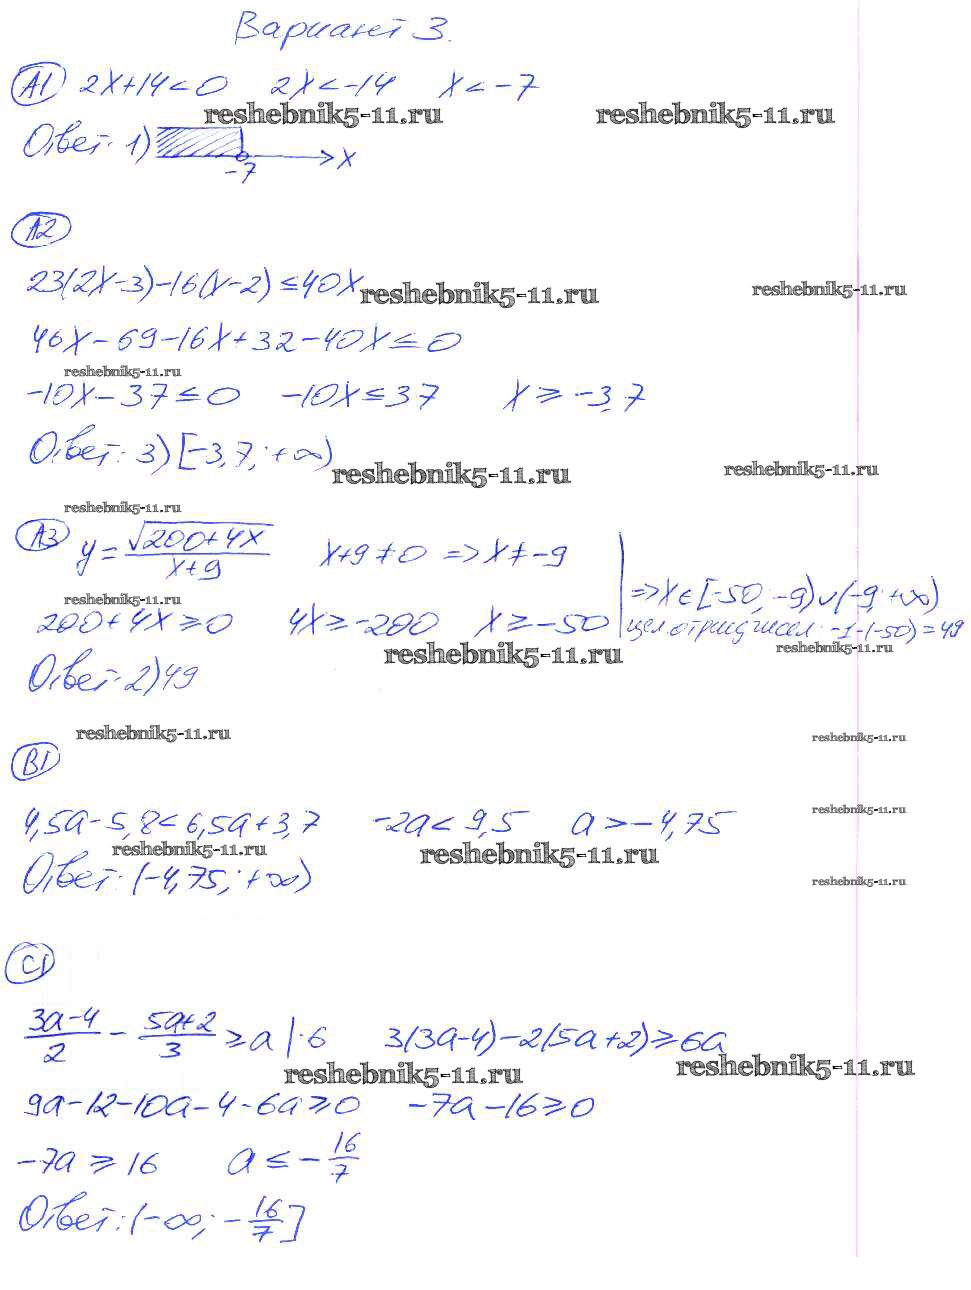 Вариант 3.
A1 2x+14<0 2x<-14 x<-7
reshebnik5-11.ru reshebnik5-11.ru
Ответ: 1)
-7 x
A2
23(2x-3)-16(x-2)≤40x
reshebnik5-11.ru reshebnik5-11.ru
46x-69-16x+32-40x≤0
reshebnik5-11.ru
-10x-37≤0 -10x≤37 x≥-3,7
Ответ: 3) [-3,7; +∞)
reshebnik5-11.ru reshebnik5-11.ru
reshebnik5-11.ru
A3 y=√(200+4x)/(x+9) x+9≠0 => x≠-9
=> x∈[-50; -9)∪(-9; +∞)
reshebnik5-11.ru
200+4x≥0 4x≥-200 x≥-50
цел отриц чисел -1-(-50)=49
reshebnik5-11.ru reshebnik5-11.ru
Ответ: 2) 49
reshebnik5-11.ru reshebnik5-11.ru
B1
reshebnik5-11.ru
4,5a-5,8<6,5a+3,7 -2a<9,5 a>-4,75
reshebnik5-11.ru reshebnik5-11.ru
Ответ: (-4,75; +∞)
reshebnik5-11.ru
C1
(3a-4)/2 - (5a+2)/3 ≥a |·6 3(3a-4)-2(5a+2)≥6a
reshebnik5-11.ru reshebnik5-11.ru
9a-12-10a-4-6a≥0 -7a-16≥0
-7a≥16 a≤-16/7
Ответ: (-∞; -16/7]